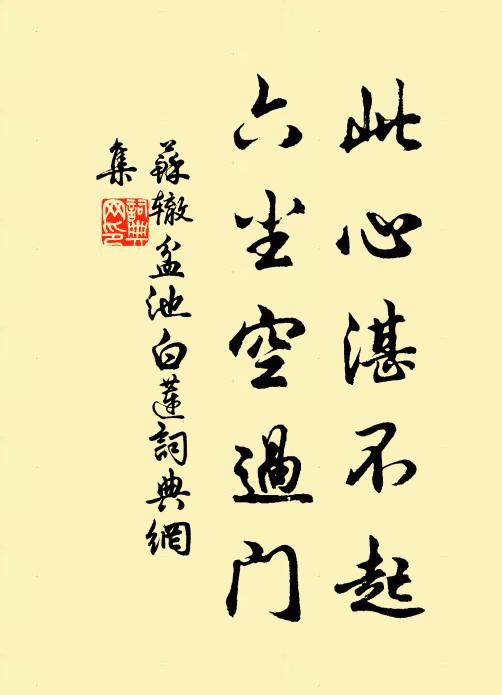 此心湛不起
六尘空過门
蘇辙盆池白蓮詞典網
集
詞典
网印